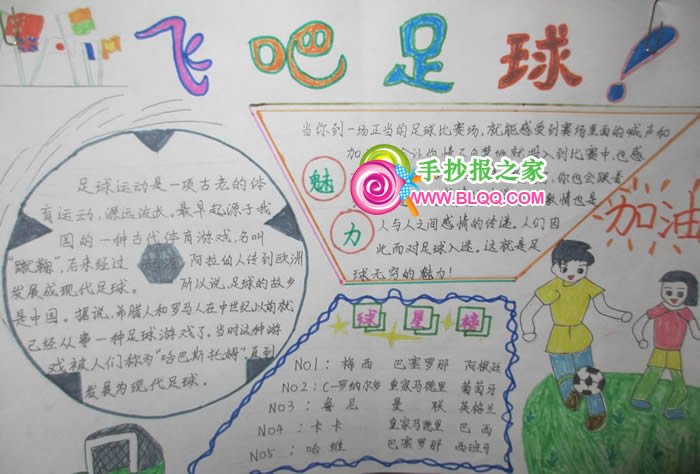 飞吧足球!
足球运动是一项古老的体
育运动,源远流长。最早起源于我
国的一种古代体育游戏,名叫
"蹴鞠",后来经过 阿拉伯人传到欧洲
发展成现代足球。 所以说,足球的故乡
是中国。据说,希腊人和罗马人在中世纪以前就
已经从事一种足球游戏了。当时这种游
戏被人们称为"哈巴斯托姆",直到
发展为现代足球。
当你到一场正当的足球比赛场,就能感受到赛场里面的喊声和
加 入到比赛中,也感
你也会跟着
激情也是
人与人之间感情的传递。人们因
此而对足球入迷。这就是足
球无穷的魅力!
魅
力
手抄报之家
www.BLQQ.com
加油
球星榜
NO1:梅西 巴塞罗那 阿根廷
NO2:C-罗纳尔多 皇家马德里 葡萄牙
NO3:鲁尼 曼联 英格兰
NO4:卡卡 皇家马德里 巴西
NO5:哈维 巴塞罗那 西班牙